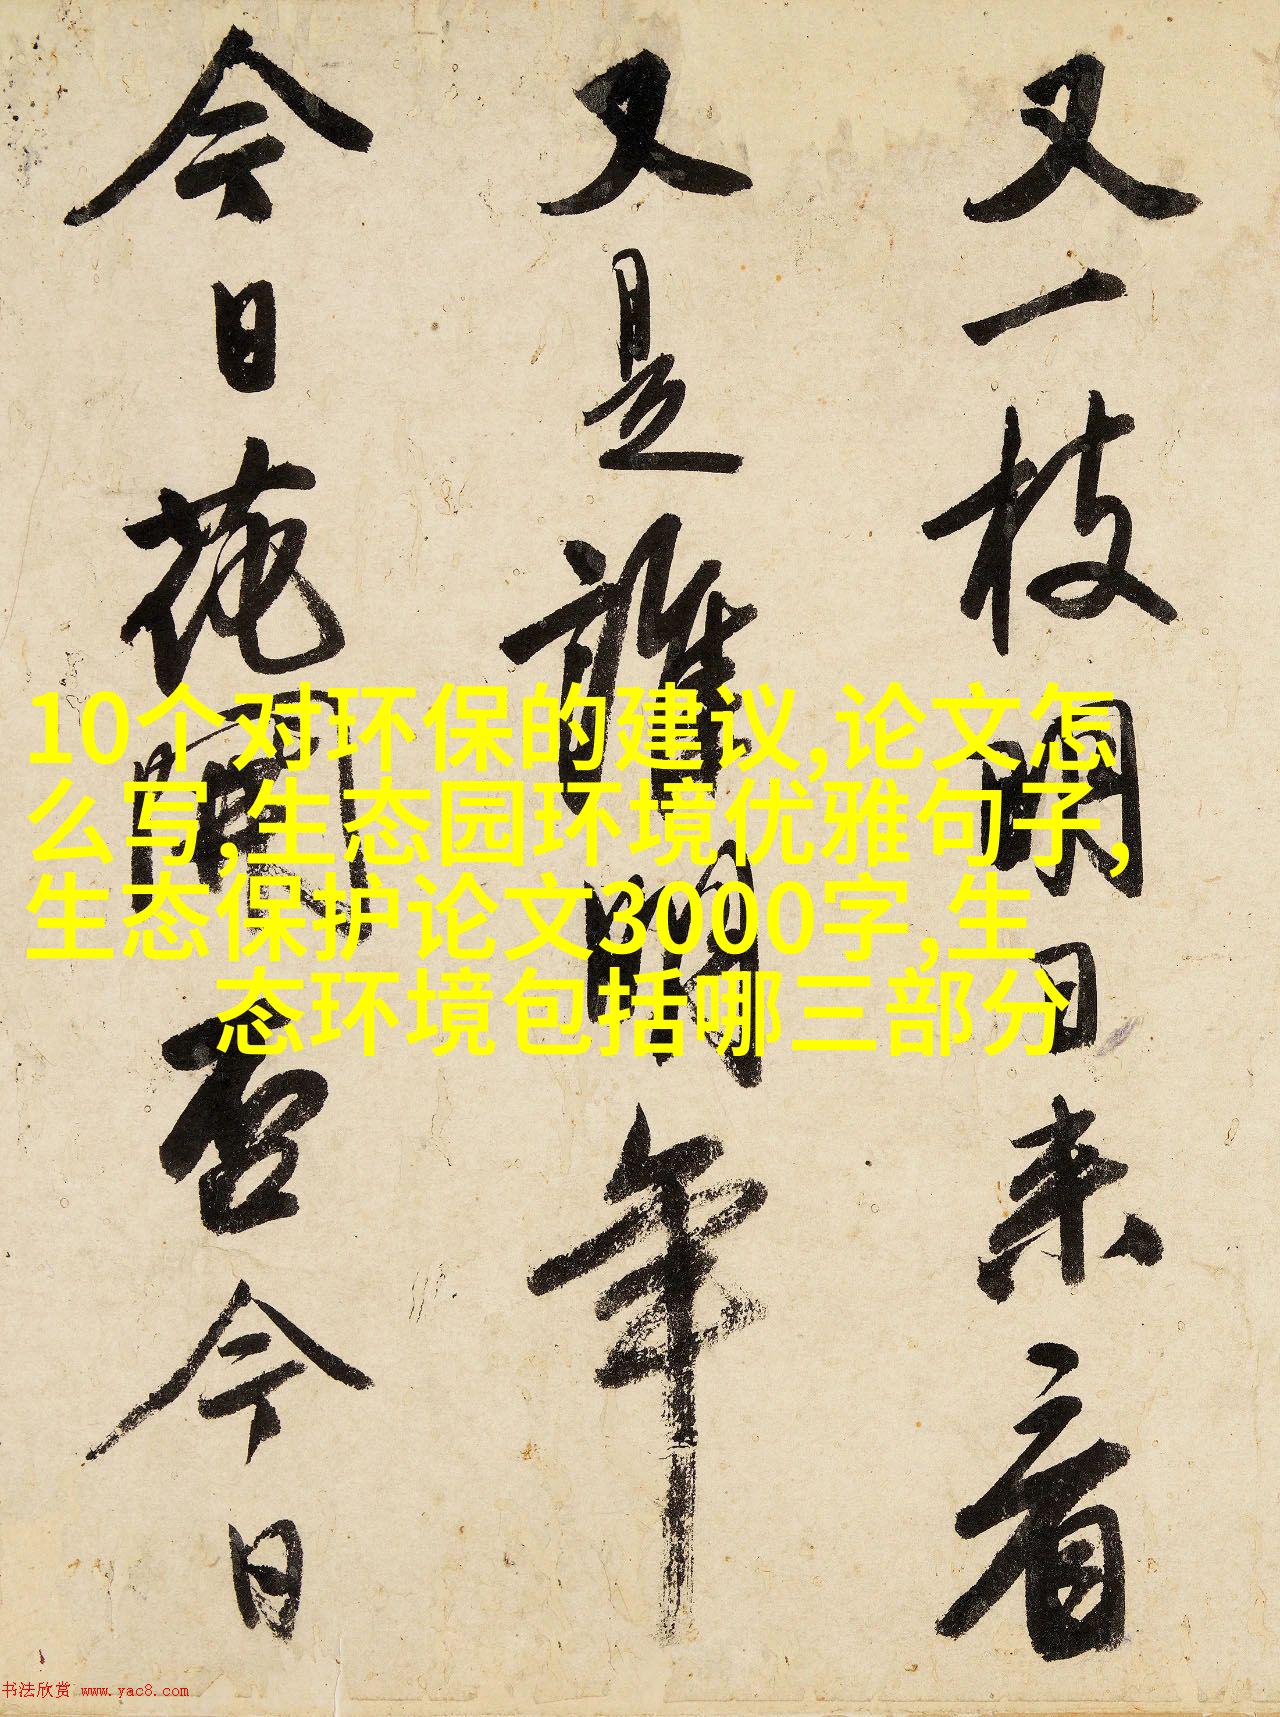 又一枝明日来看
又是誰明年
今日花開否今日
10个对环保的建议,论文怎
么写,生态园环境优雅句子,
生态保护论文3000字,生
态环境包括哪三部分
书法欣赏 www.yac8.com